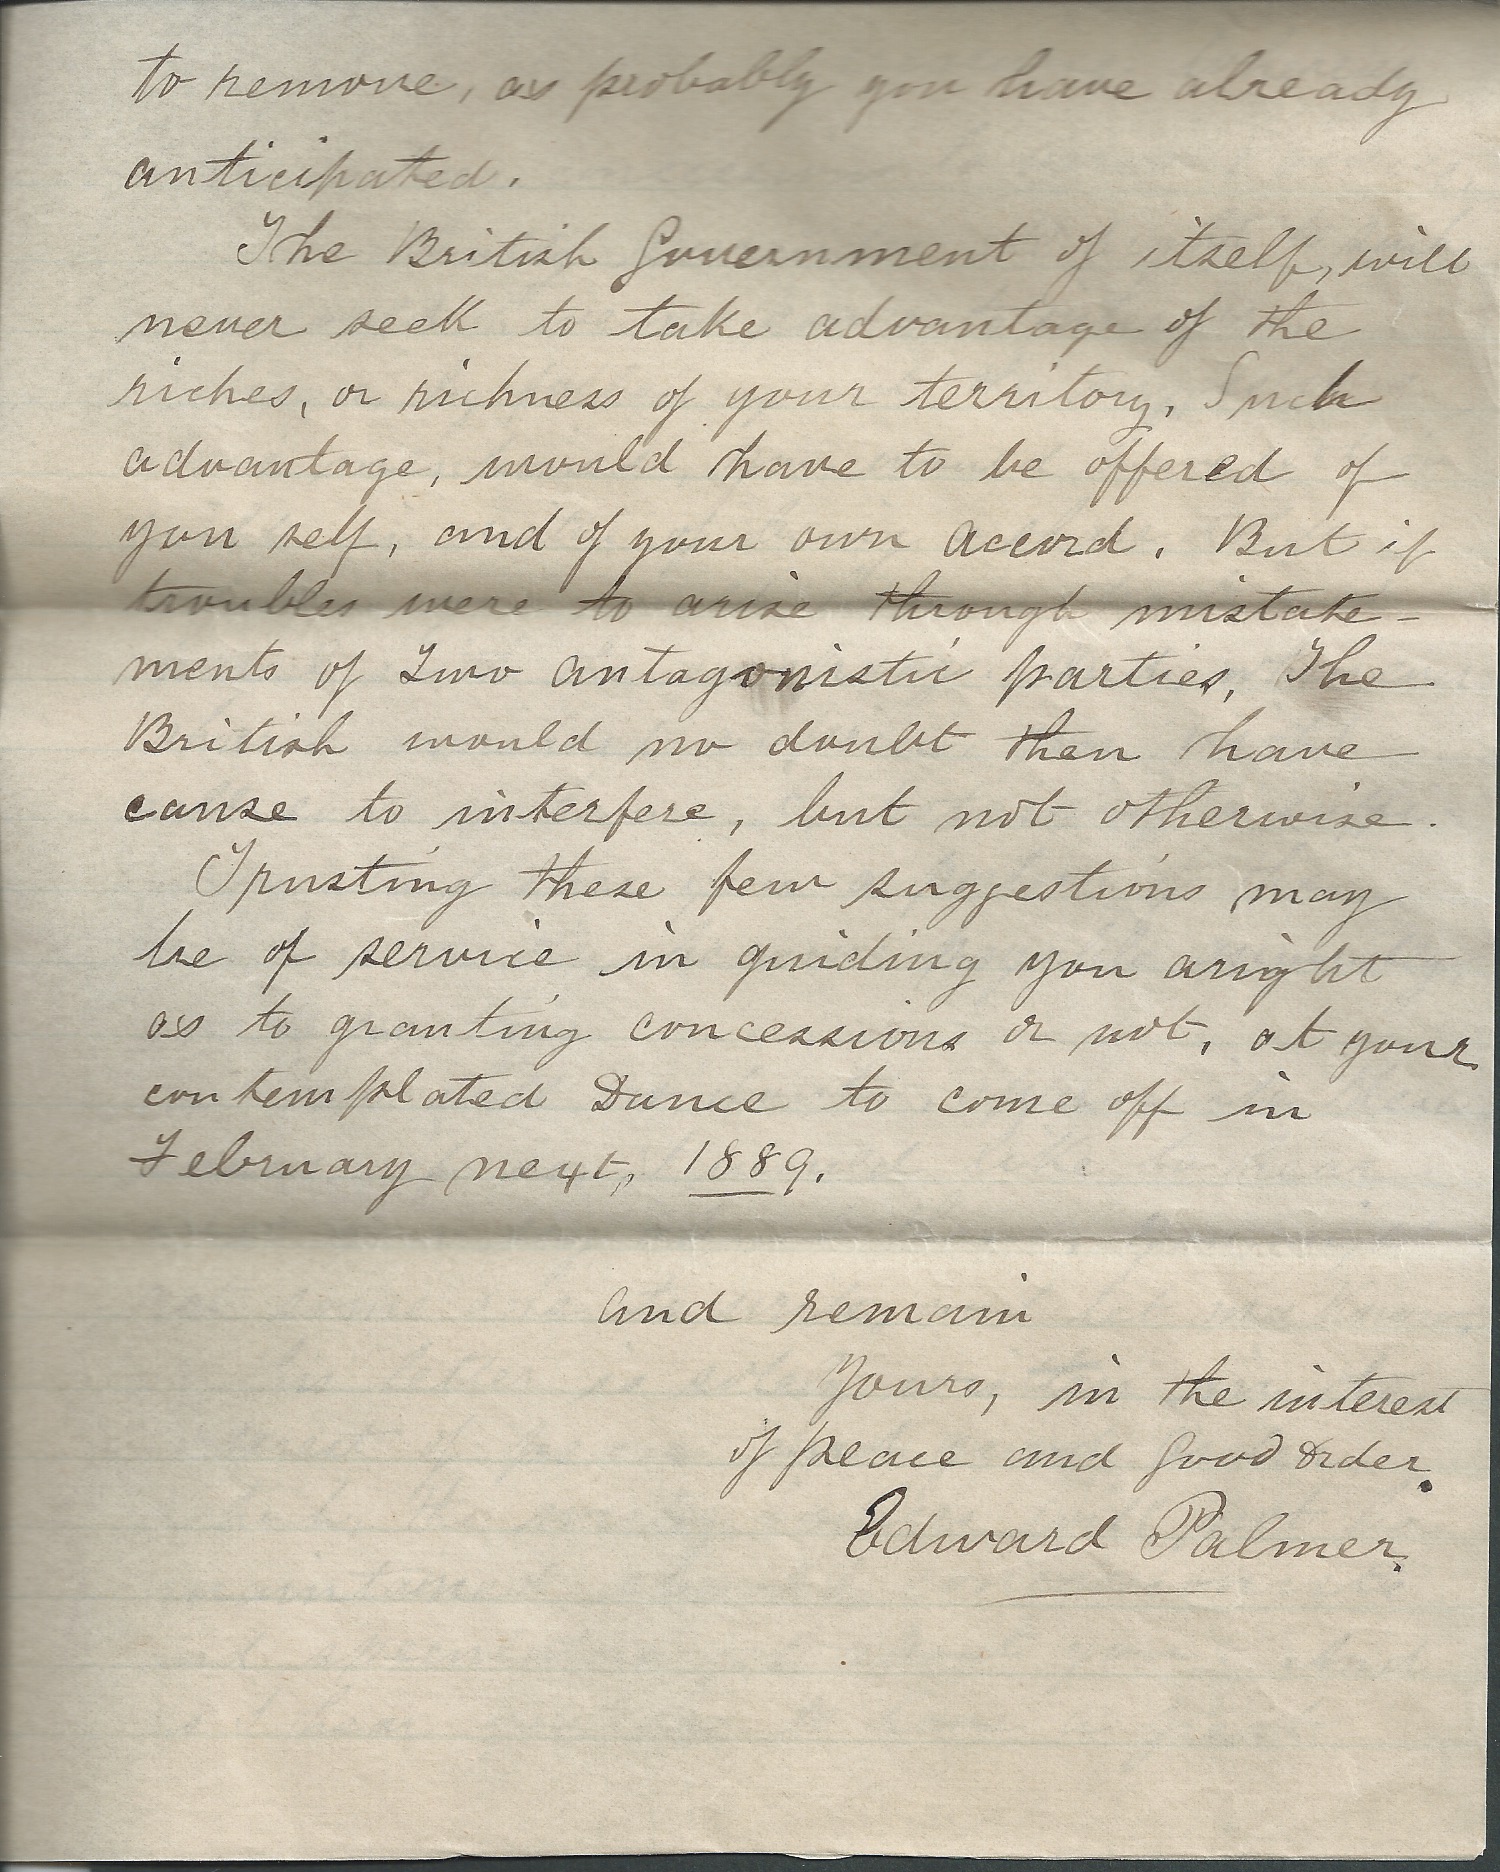 to remove, as probably you have already
anticipated.
The British Government of itself, will
never seek to take advantage of the
riches, or richness of your territory. Such
advantage, would have to be offered of
you self, and of your own accord. But if
troubles were to arise through mistate-
ments of Two antagonistic parties, The
British would no doubt then have
cause to interfere, but not otherwise.
Trusting these few suggestions may
be of service in guiding you aright
as to granting concessions or not, at your
contemplated Dance to come off in
February next, 1889.
and remain
Yours, in the interest
of peace and Good Order.
Edward Palmer.